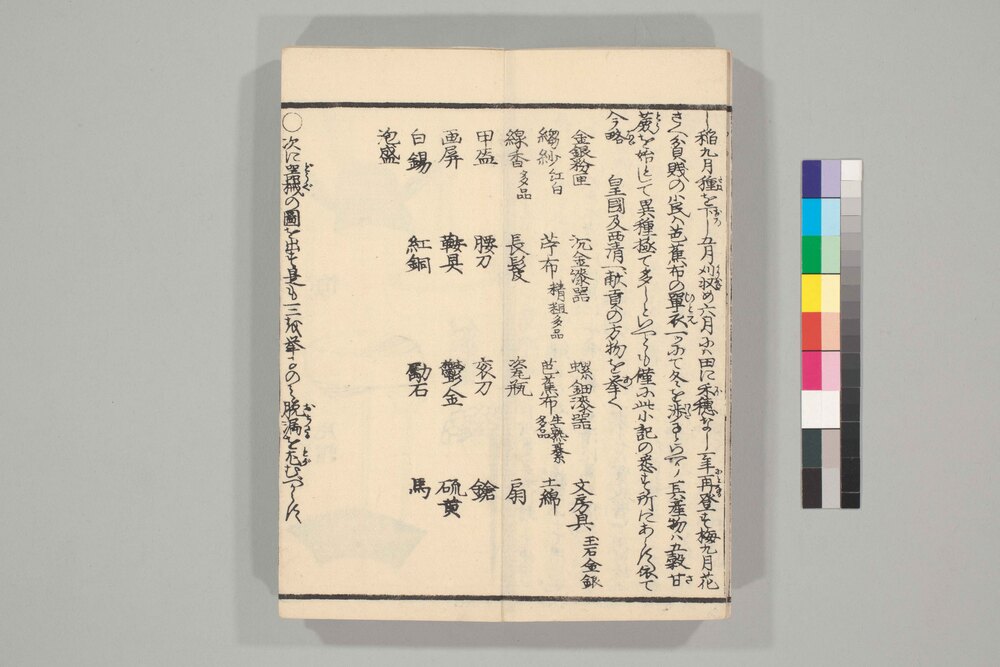 し稲九月種を下し五月刈収め六月にハ田に禾穂なし一年再登す梅九月花
さく貧賤の小民ハ芭蕉布の單衣一ツにて冬を渉るといへり其産物ハ五穀甘
蔗を始として異種極て多しといへとも僅に此小記の悉す所にあらす依て
今略 皇國及西清へ献貢の方物を挙く
金銀粉匣 沉金漆器 螺鈿漆器 文房具 玉石金銀
縐紗 紅白 苧布 精粗多品 芭蕉布 生熟纂多品 土綿
線香 多品 長髪 瓷瓶 扇
甲盔 腰刀 衮刀 鎗
画屏 鞍具 鬱金 硫黄
白錫 紅銅 礪石 馬
泡盛
〇次に器械の圖を出す是も二三を挙るのミ脱漏を尤むへからす